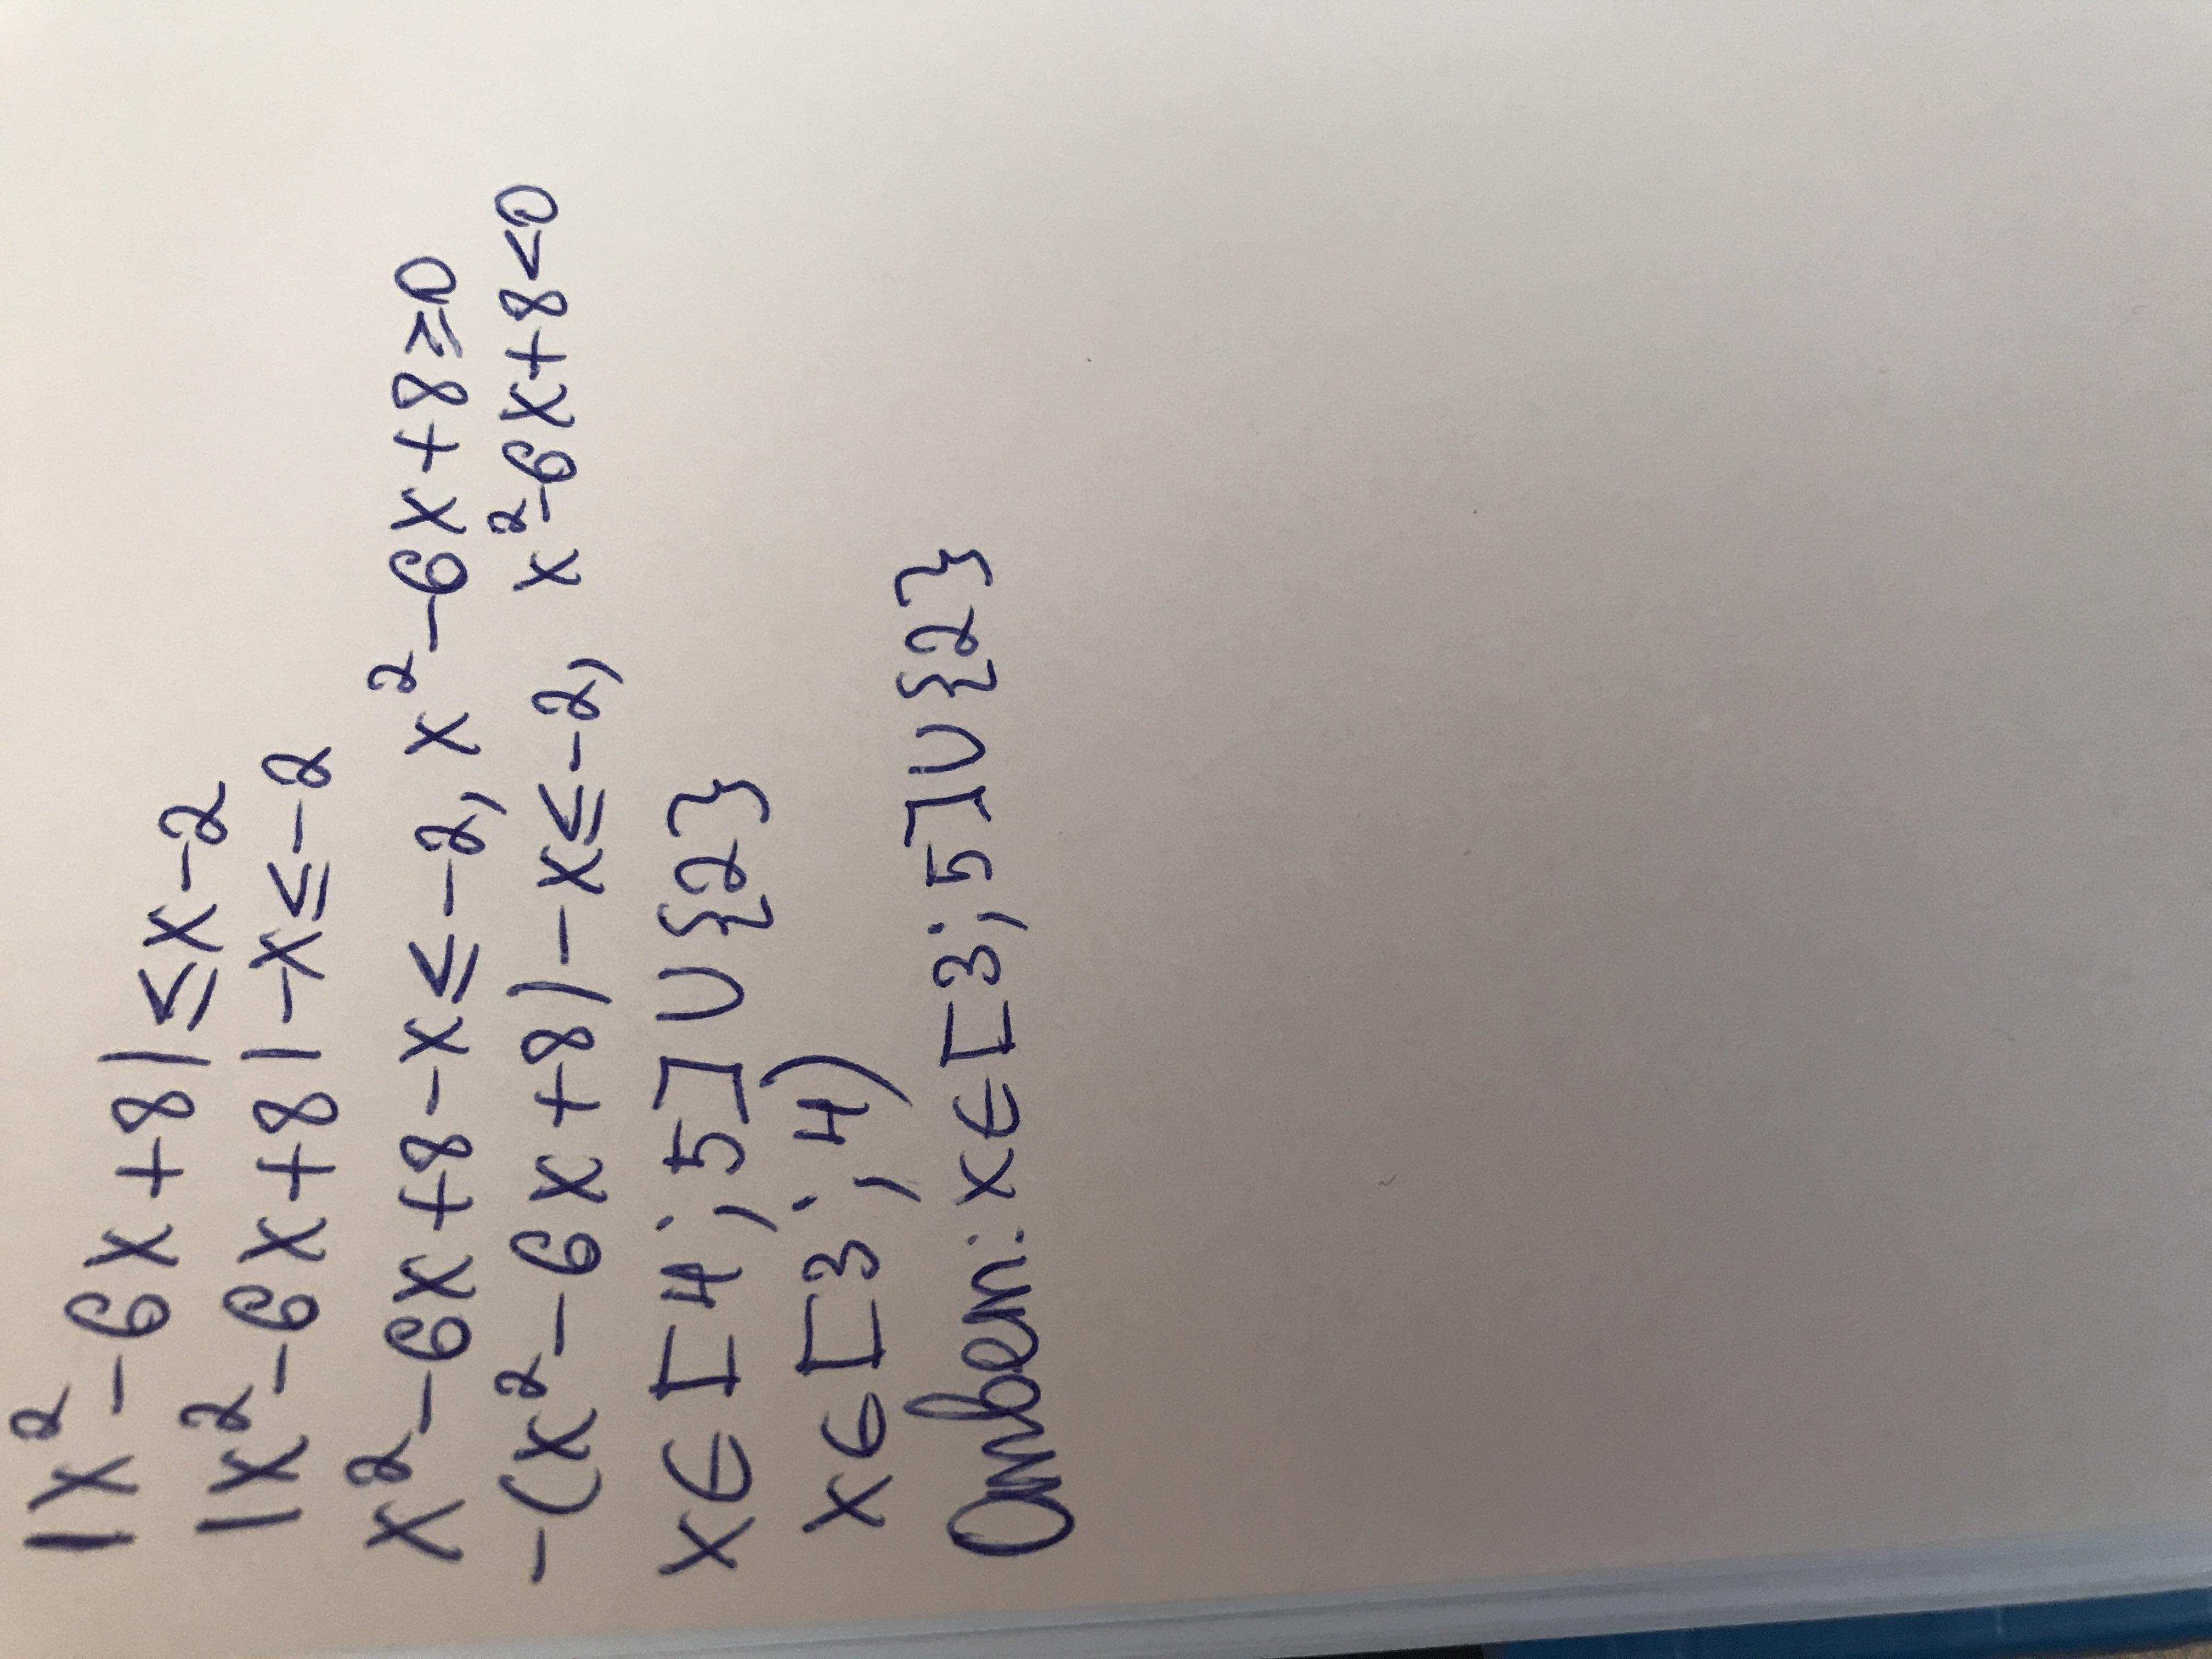 |x²-6x+8|≤x-2
|x²-6x+8|-x≤-2
x²-6x+8-x≤-2, x²-6x+8≥0
-(x²-6x+8)-x≤-2, x²-6x+8<0
x∈[4;5]∪{2}
x∈[3;4)
Ответ: x∈[3;5]∪{2}